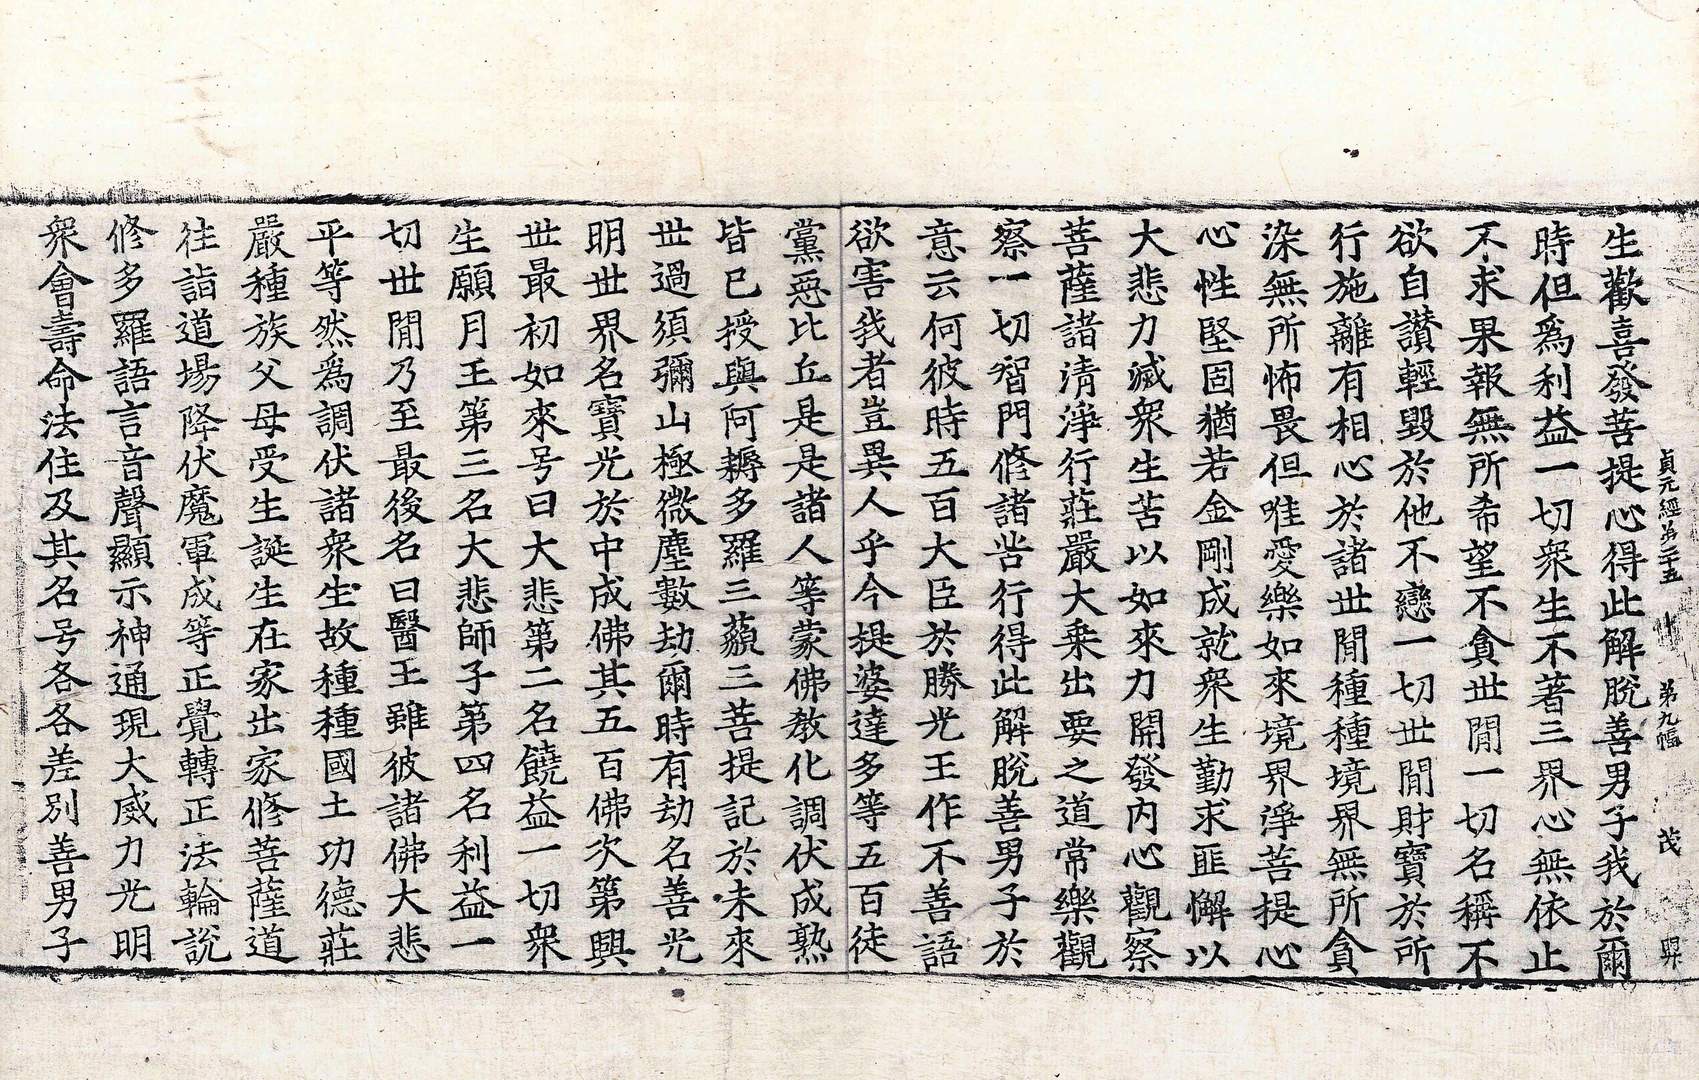 貞元經第二十五 十 第九幅 茂 㒷
生歡喜發菩提心得此解脫善男子我於爾
時但爲利益一切衆生不著三界心無依止
不求果報無所希望不貪世閒一切名稱不
欲自讃輕毀於他不戀一切世閒財寶於所
行施離有相心於諸世閒種種境界無所貪
染無所怖畏但唯愛樂如來境界淨菩提心
心性堅固猶若金剛成就衆生勤求匪懈以
大悲力滅衆生苦以如來力開發內心觀察
菩薩諸清淨行莊嚴大乘出要之道常樂觀
察一切智門修諸苦行得此解脫善男子於
意云何彼時五百大臣於勝光王作不善語
欲害我者豈異人乎今提婆達多等五百徒
黨惡比丘是是諸人等蒙佛教化調伏成熟
皆已授與阿耨多羅三藐三菩提記於未來
世過須彌山極微塵數劫爾時有劫名善光
明世界名寶光於中成佛其五百佛次第興
世最初如來号曰大悲第二名饒益一切衆
生願月王第三名大悲師子第四名利益一
切世閒乃至最後名曰醫王雖彼諸佛大悲
平等然爲調伏諸衆生故種種國土功德莊
嚴種族父母受生誕生在家出家修菩薩道
往詣道場降伏魔軍成等正覺轉正法輪說
修多羅語言音聲顯示神通現大威力光明
衆會壽命法住及其名号各各差別善男子